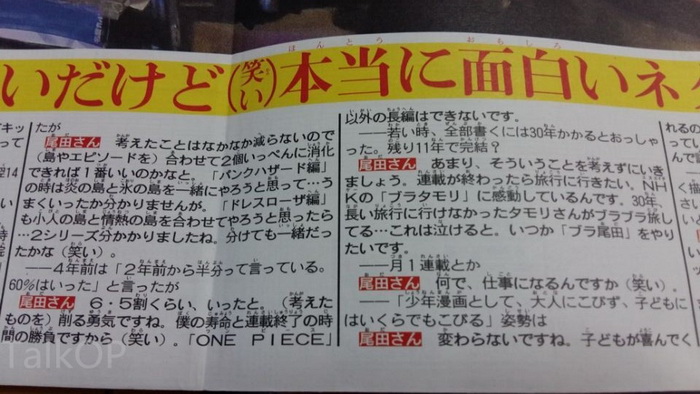 ほんとう おもしろ
いだけど(笑い)本当に面白いネタ
たが
尾田さん 考えたことはなかなか減らないので
(島やエピソードを)合わせて2個いっぺんに消化
できれば1番いいのかなと。「パンクハザード編」
の時は炎の島と氷の島を一緒にやろうと思って…う
まくいったか分かりませんが。「ドレスローザ編」
も小人の島と情熱の島を合わせてやろうと思ったら
…2シリーズ分かかりましたね。分けても一緒だっ
たかな(笑い)。
――4年前は「2年前から半分って言っている。
60%はいった」と言ったが
尾田さん 6・5割くらい、いったと。(考えた
ものを)削る勇気ですね。僕の寿命と連載終了の時
間の勝負ですから(笑い)。「ONE PIECE」
以外の長編はできないです。
――若い時、全部書くには30年かかるとおっしゃ
った。残り11年で完結?
尾田さん あまり、そういうことを考えずにいき
ましょう。連載が終わったら旅行に行きたい。NH
Kの「ブラタモリ」に感動しているんです。30年、
長い旅行に行けなかったタモリさんがブラブラ旅し
てる…これは泣けると。いつか「ブラ尾田」をやり
たいです。
――月1連載とか
尾田さん 何で、仕事になるんですか(笑い)。
――「少年漫画として、大人にこびず、子どもに
はいくらでもこびる」姿勢は
尾田さん 変わらないですね。子どもが喜んでく
TalkOP